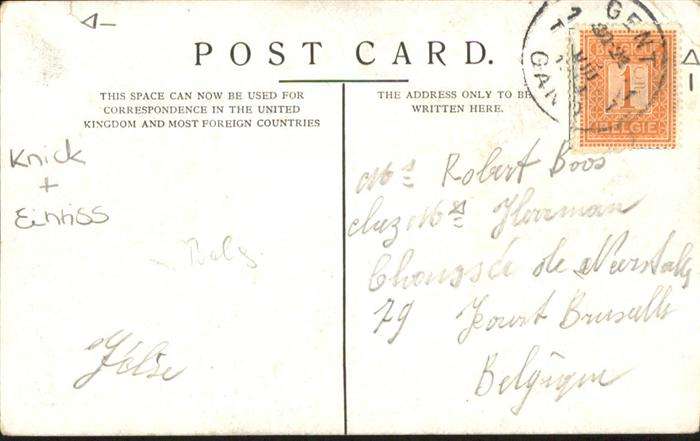 POST CARD.
THIS SPACE CAN NOW BE USED FOR
CORRESPONDENCE IN THE UNITED
KINGDOM AND MOST FOREIGN COUNTRIES
THE ADDRESS ONLY TO BE
WRITTEN HERE.
GENT
GAND
1
BELGIE
Knick
+
Einriss
Belg
Robert Boos
chez Herman
Chaussée de
79 Bruxelles
Belgique